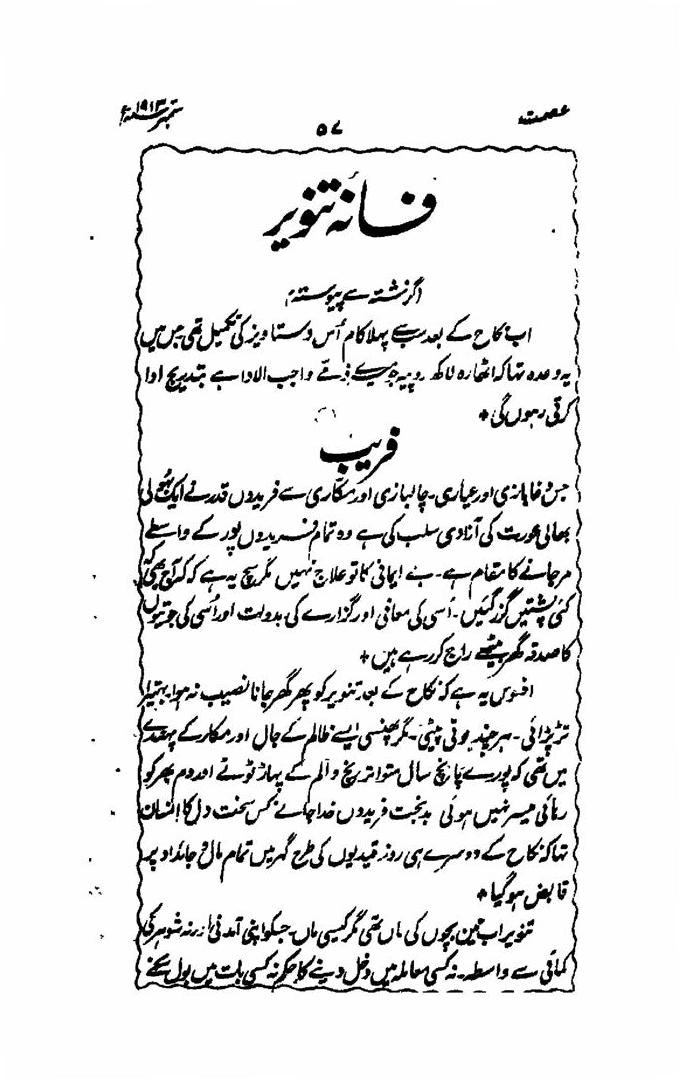 عصمت
۵۷
ستمبر ۱۹۱۳ء
فسانۂ تنویر
(گزشتہ سے پیوستہ)
اب نکاح کے بعد سب سے پہلا کام اُس دستاویز کی تکمیل تھی جس میں
یہ وعدہ تھا کہ اٹھارہ لاکھ روپیہ جو میرے ذمے واجب الادا ہے بتدریج ادا
کرتی رہوں گی +
فریب
جس دغابازی اور عیاری۔ چالبازی اور مکاری سے فریدوں قدر نے ایک بھولی
بھالی عورت کی آزادی سلب کی ہے وہ تمام فریدوں پور کے واسطے
مر جانے کا مقام ہے۔ بے ایمانی کا تو علاج نہیں مگر سچ یہ ہے کہ آج بھی کہ
کئی پشتیں گزر گئیں۔ اُسی کی معافی اور گزارے کی بدولت اور اُسی کی جوتیوں
کا صدقہ گھر بیٹھے راج کر رہے ہیں +
افسوس یہ ہے کہ نکاح کے بعد تنویر کو پھر گھر جانا نصیب نہ ہوا بہتیرا
تڑپڑائی۔ ہر چند روئی پیٹی۔ مگر پھنسی ایسے ظالم کے جال اور مکار کے پھندے
میں تھی کہ پورے پانچ سال متواتر رنج و الم کے پہاڑ ٹوٹے اور دم بھر کو
رہائی میسر نہیں ہوئی بدبخت فریدوں خدا جانے کس سخت دل کا انسان
تھا کہ نکاح کے دوسرے ہی روز قیدیوں کی طرح گھر میں تمام مال و جائداد پر
قابض ہو گیا +
تنویر اب تین بچوں کی ماں تھی مگر کیسی ماں۔ جسکو اپنی آمدنی از نہ شوہر کی
کمائی سے واسطہ۔ نہ کسی معاملہ میں دخل دینے کا حکم نہ کسی بات میں بول سکنے